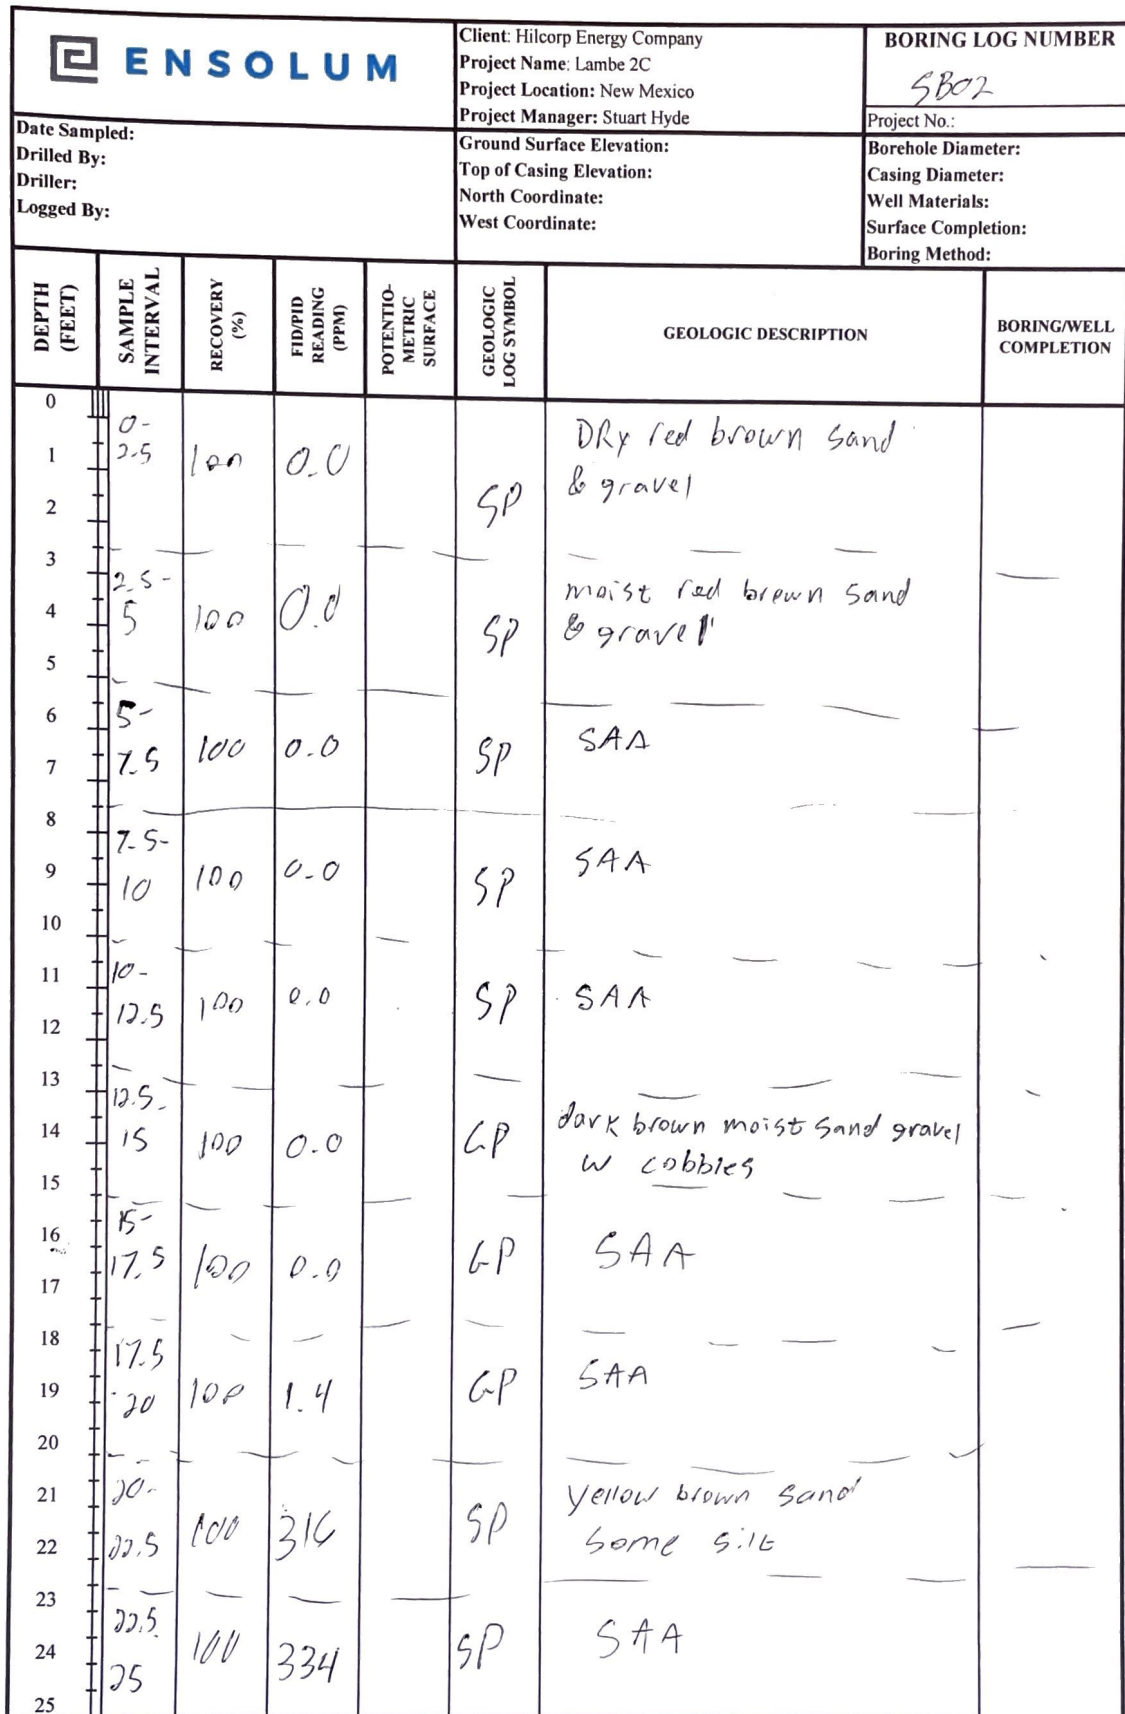 ENSOLUM
Client: Hilcorp Energy Company
Project Name: Lambe 2C
Project Location: New Mexico
Project Manager: Stuart Hyde
BORING LOG NUMBER
SB02
Project No.:
Date Sampled:
Drilled By:
Driller:
Logged By:
Ground Surface Elevation:
Top of Casing Elevation:
North Coordinate:
West Coordinate:
Borehole Diameter:
Casing Diameter:
Well Materials:
Surface Completion:
Boring Method:
DEPTH
(FEET)
SAMPLE
INTERVAL
RECOVERY
(%)
FID/PID
READING
(PPM)
POTENTIO-
METRIC
SURFACE
GEOLOGIC
LOG SYMBOL
GEOLOGIC DESCRIPTION
BORING/WELL
COMPLETION
0
0-
DRy red brown sand
1
2.5 100 0.0
& gravel
2 SP
3
2.5-
moist red brown sand
4 5 100 0.0 SP & gravel
5
6 5-
7 7.5 100 0.0 SP SAA
8
7.5-
9 10 100 0.0 SP SAA
10
11 10-
12 12.5 100 0.0 SP SAA
13
12.5-
14 15 100 0.0 GP dark brown moist sand gravel
w cobbles
15
15-
16
17.5 100 0.0 GP SAA
17
18
17.5
19 20 100 1.4 GP SAA
20
21 20-
yellow brown sand
22 22.5 100 316 SP some silt
23
22.5
24 25 100 334 SP SAA
25